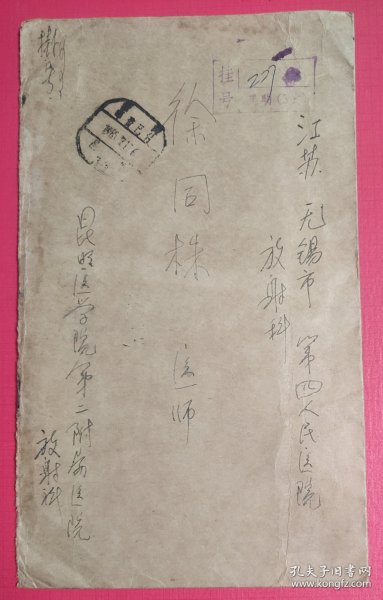 挂号
挂
号
江苏 无锡市 第四人民医院
放射科
徐同株 医师
昆明医学院第二附属医院
放射科
孔夫子旧书网